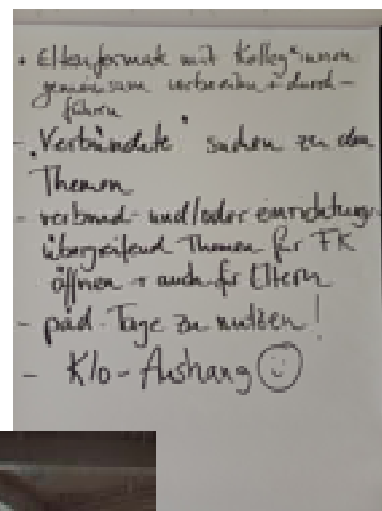 • Elternformate mit Kolleg*innen
gemeinsam vorbereiten + durch-
führen
- "Verbündete" suchen zu den
Themen
- verbund- und/oder einrichtungs-
übergreifend Themen für FK
öffnen + auch für Eltern
- päd. Tage zu nutzen!
- Klo-Aushang ☺